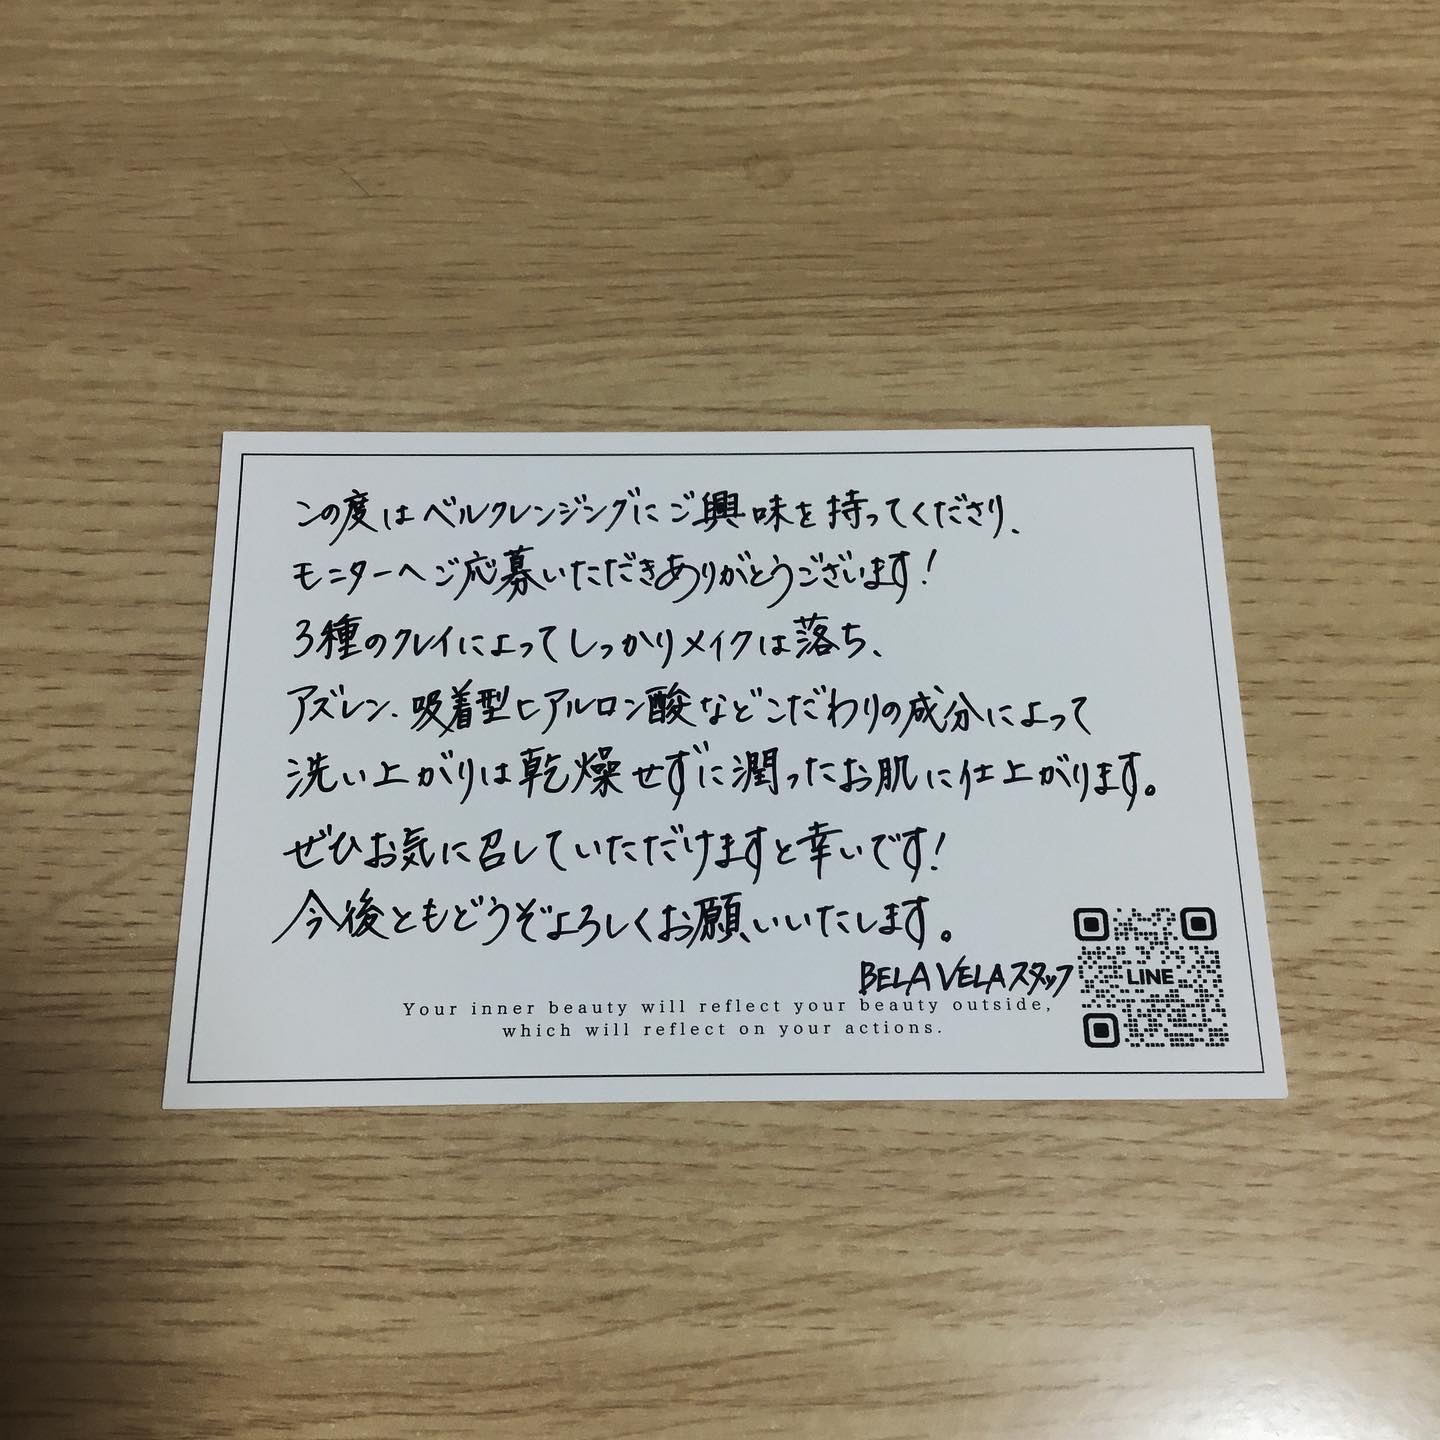 この度はベルクレンジングにご興味を持ってくださり、
モニターへご応募いただきありがとうございます!
3種のクレイによってしっかりメイクは落ち、
アズレン、吸着型ヒアルロン酸などこだわりの成分によって
洗い上がりは乾燥せずに潤ったお肌に仕上がります。
ぜひお気に召していただけますと幸いです!
今後ともどうぞよろしくお願いいたします。
BELA VELAスタッフ
LINE
Your inner beauty will reflect your beauty outside,
which will reflect on your actions.